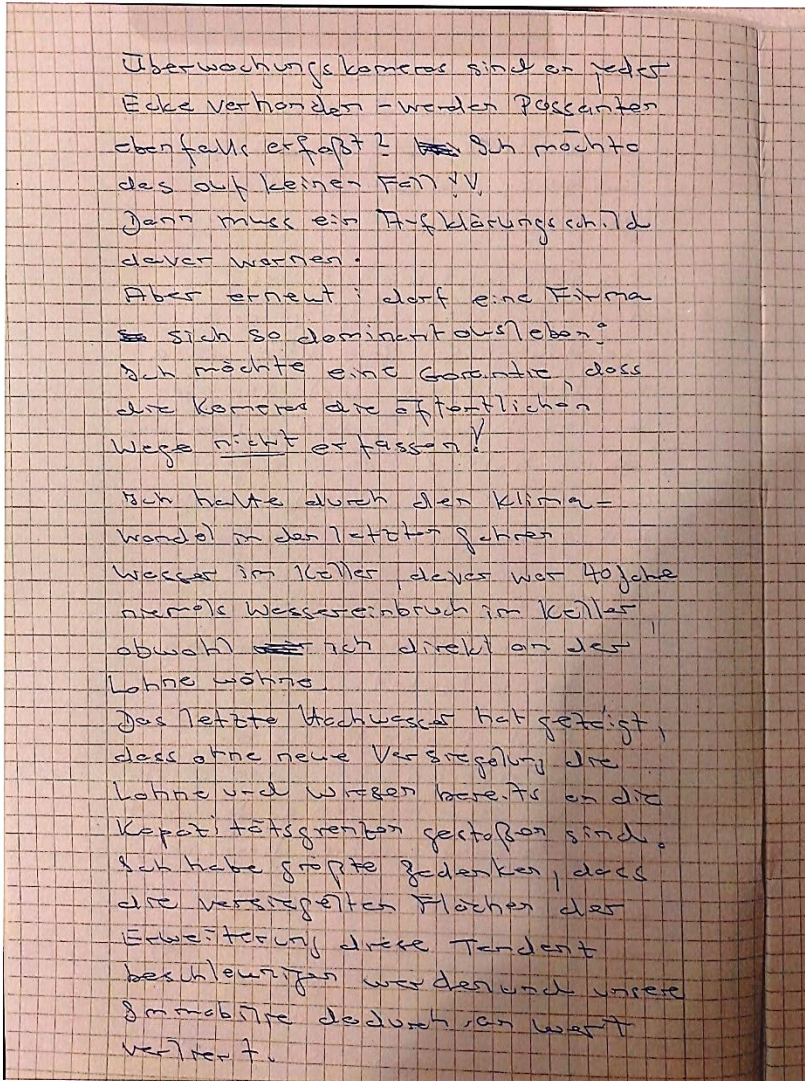 Überwachungskameras sind an jeder
Ecke vorhanden - werden Passanten
ebenfalls erfaßt? Ich möchte
das auf keinen Fall!!
Dann muss ein Aufklärungsschild
davor warnen.
Aber erneut: darf eine Firma
sich so dominant ausleben?
Ich möchte eine Garantie, dass
die Kameras die öffentlichen
Wege nicht erfassen!
Ich hatte durch den Klima-
wandel in den letzten Jahren
Wasser im Keller, davor war 40 Jahre
niemals Wassereinbruch im Keller,
obwohl ich direkt an der
Lohne wohne.
Das letzte Hochwasser hat gezeigt,
dass ohne neue Versiegelung die
Lohne und Wiesen bereits an die
Kapazitätsgrenzen gestoßen sind.
Ich habe größte Bedenken, dass
die versiegelten Flächen der
Erweiterung diese Tendenz
beschleunigen werden und unsere
Immobilie dadurch an Wert
verliert.